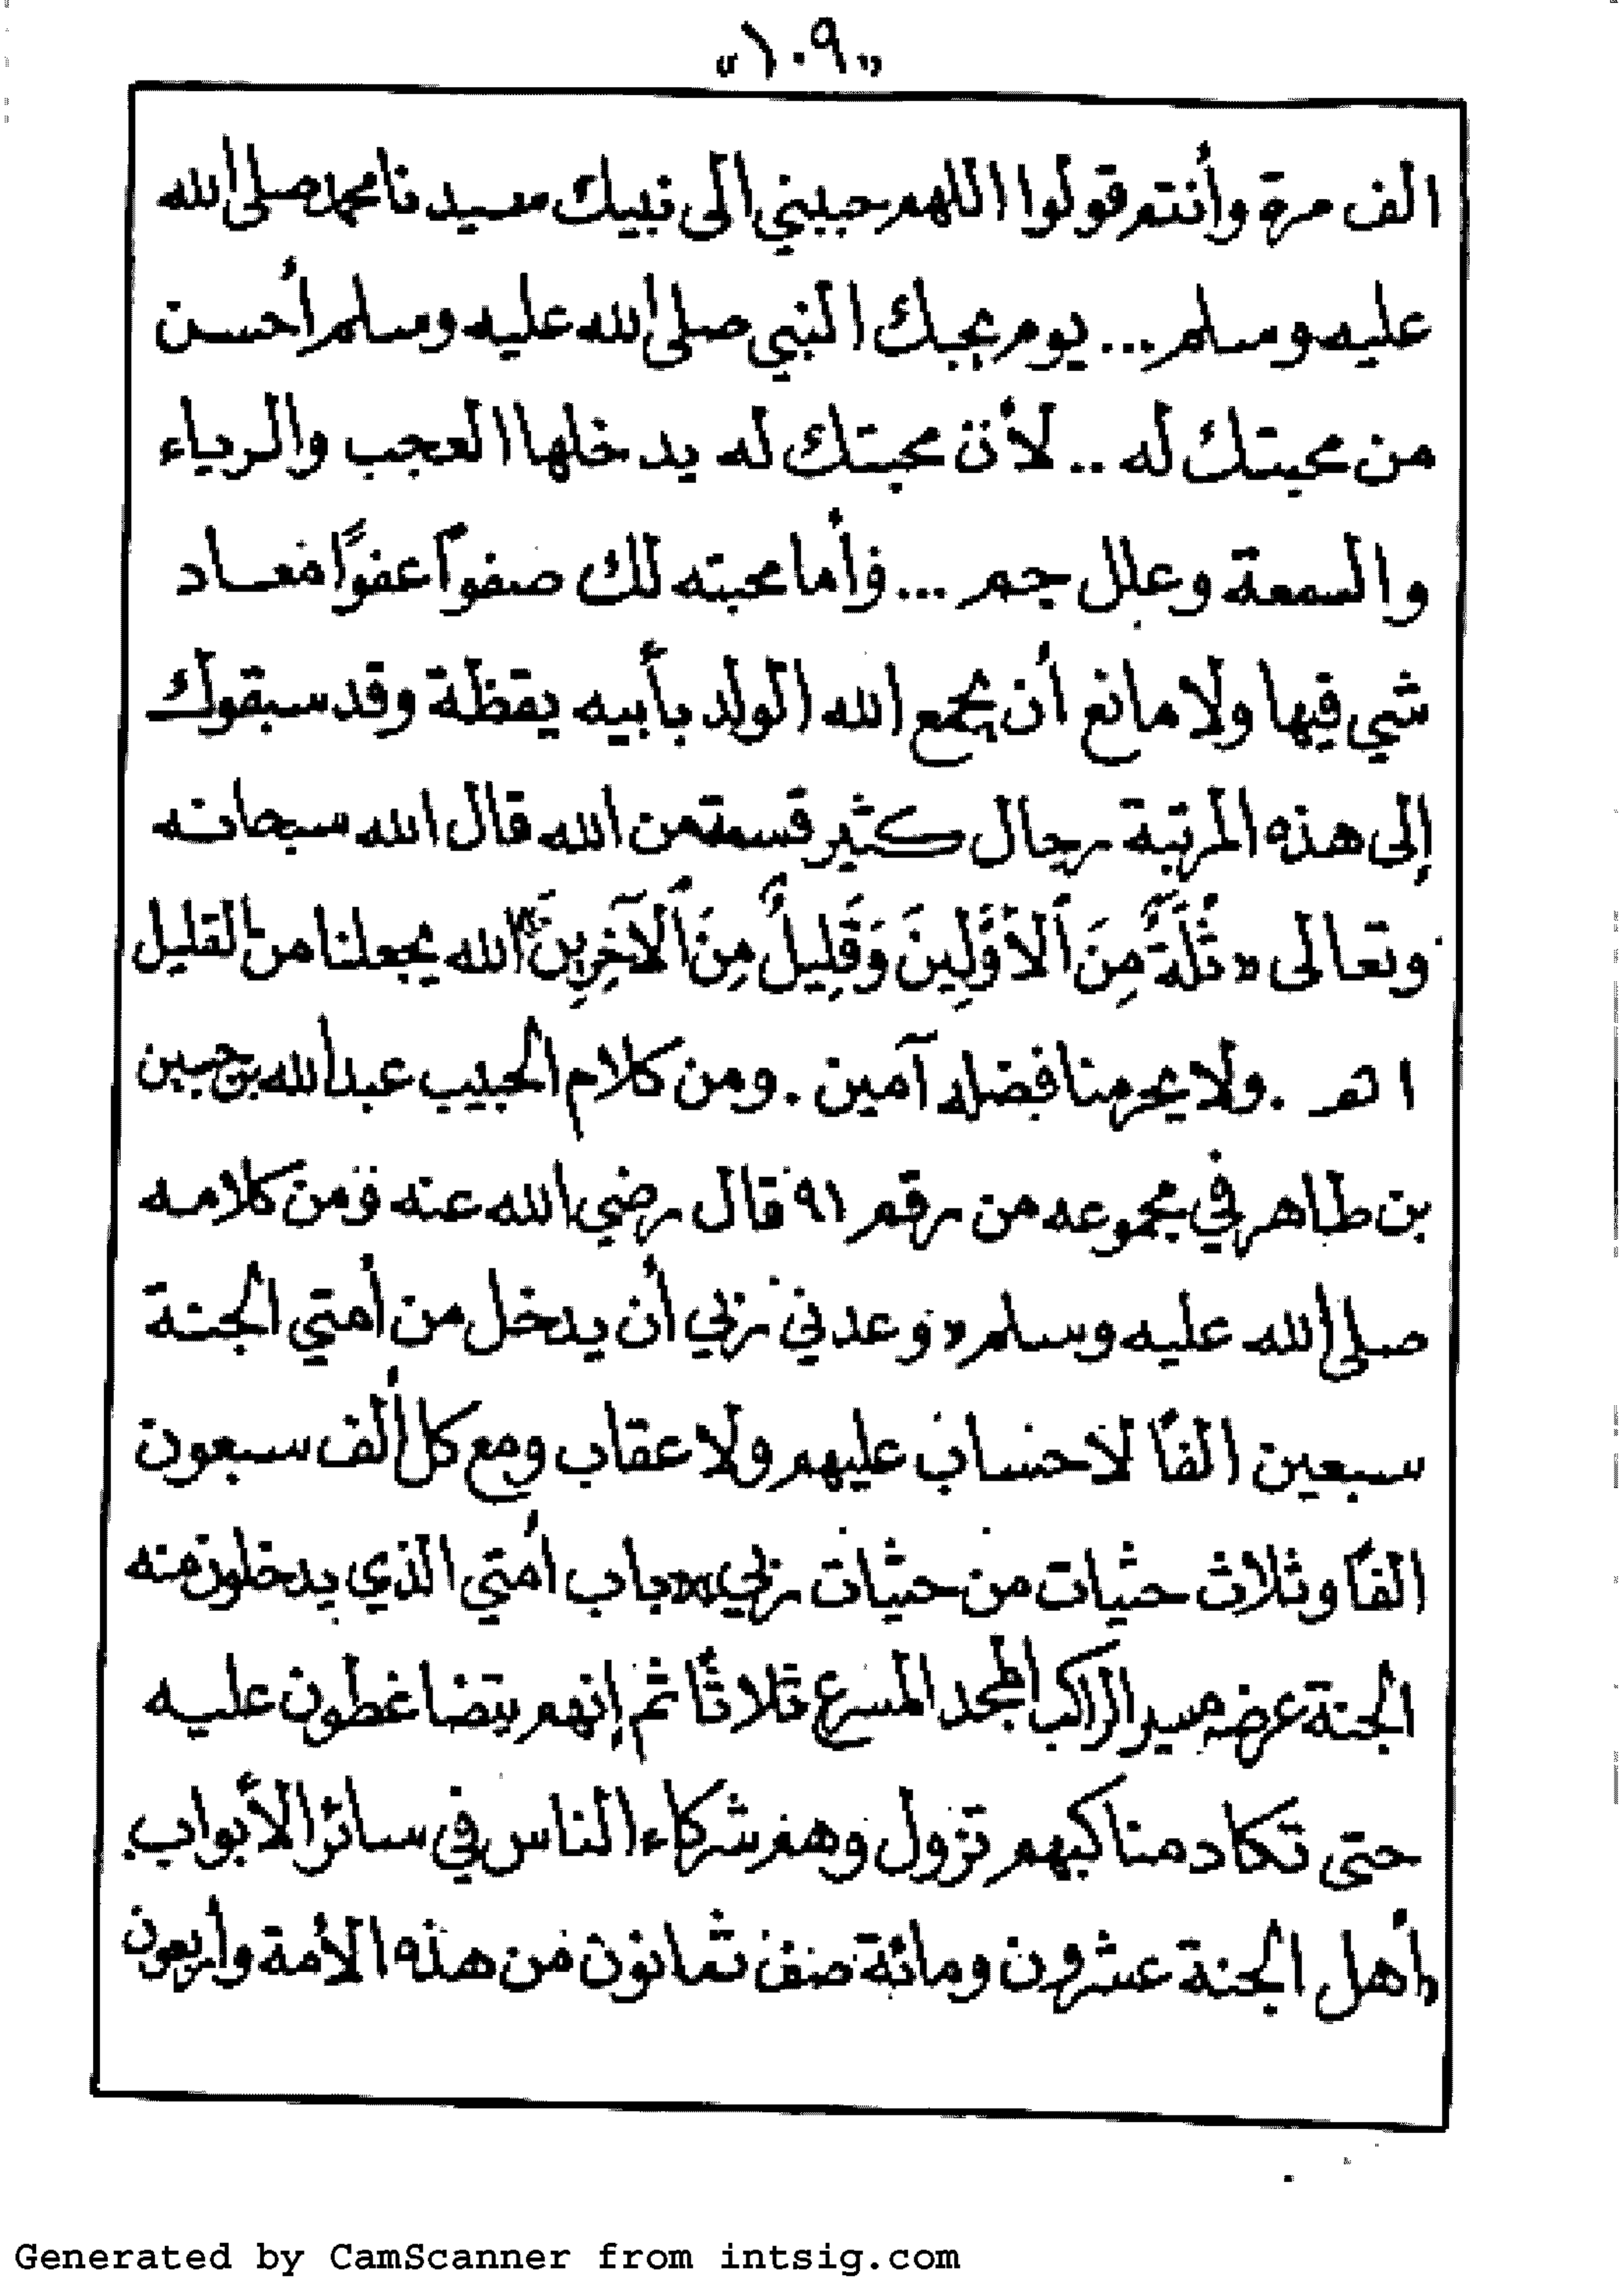 «١٠٩»
الف مرة وأنتم قولوا اللهم حببني الى نبيك سيدنا محمد صلى الله
عليه وسلم ... يوم يحبك النبي صلى الله عليه وسلم أحسن
من محبتك له .. لأن محبتك له يدخلها العجب والرياء
والسمعة وعلل جم ... فأما محبته لك صفواً عفواً ماعاد
شي فيها ولا مانع أن يجمع الله الولد بأبيه يقظة وقد سبقوك
إلى هذه المرتبة رجال كثير قسمة من الله قال الله سبحانه
وتعالى «ثُلَّةٌ مِنَ اَلأَوَّلِينَ وَقَلِيلٌ مِنَ اَلآخِرِينَ» الله يجعلنا من القليل
اهـ . ولا يحرمنا فضله آمين . ومن كلام الحبيب عبدالله بن حسين
بن طاهر في مجموعه من رقم ٩١ قال رضي الله عنه ومن كلامه
صلى الله عليه وسلم «وعدني ربي أن يدخل من أمتي الجنة
سبعين الفاً لا حساب عليهم ولا عقاب ومع كل ألف سبعون
الفاً وثلاث حثيات من حثيات ربي» «باب أمتي الذي يدخلون منه
الجنة عرضه مسير الراكب المجد المسرع ثلاثاً ثم إنهم يتضاغطون عليه
حتى تكاد مناكبهم تزول وهم شركاء الناس في سائر الأبواب.
«أهل الجنة عشرون ومائة صف ثمانون من هذه الأمة وأربعون
Generated by CamScanner from intsig.com